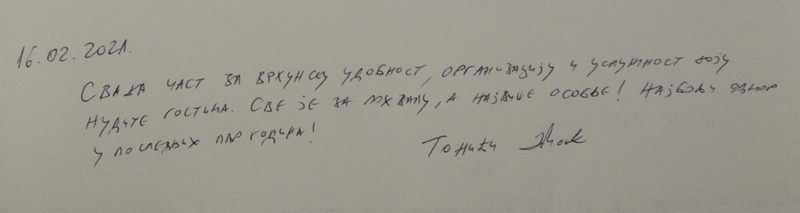 16.02.2021.
Свака част за врхунску удобност, организацију и услужност коју
нудите гостима. Све је за похвалу, а највише особље! Најбољи одмор
у последњих пар година!